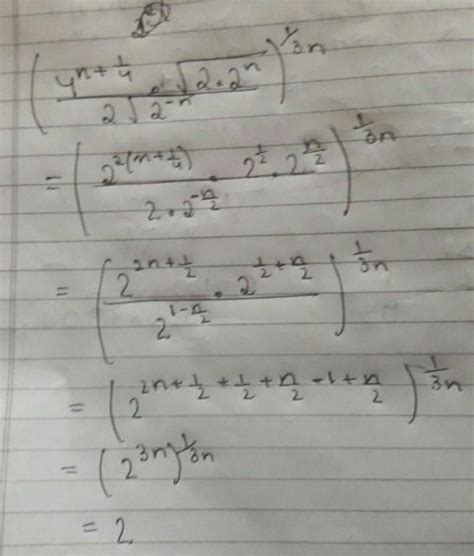 (4^{n+1/4} · √(2·2^n) / 2√(2^{-n}))^{1/3n}
= (2^{2(n+1/4)} · 2^{1/2} · 2^{n/2} / 2·2^{-n/2})^{1/3n}
= (2^{2n+1/2} · 2^{1/2+n/2} / 2^{1-n/2})^{1/3n}
= (2^{2n+1/2+1/2+n/2-1+n/2})^{1/3n}
= (2^{3n})^{1/3n}
= 2